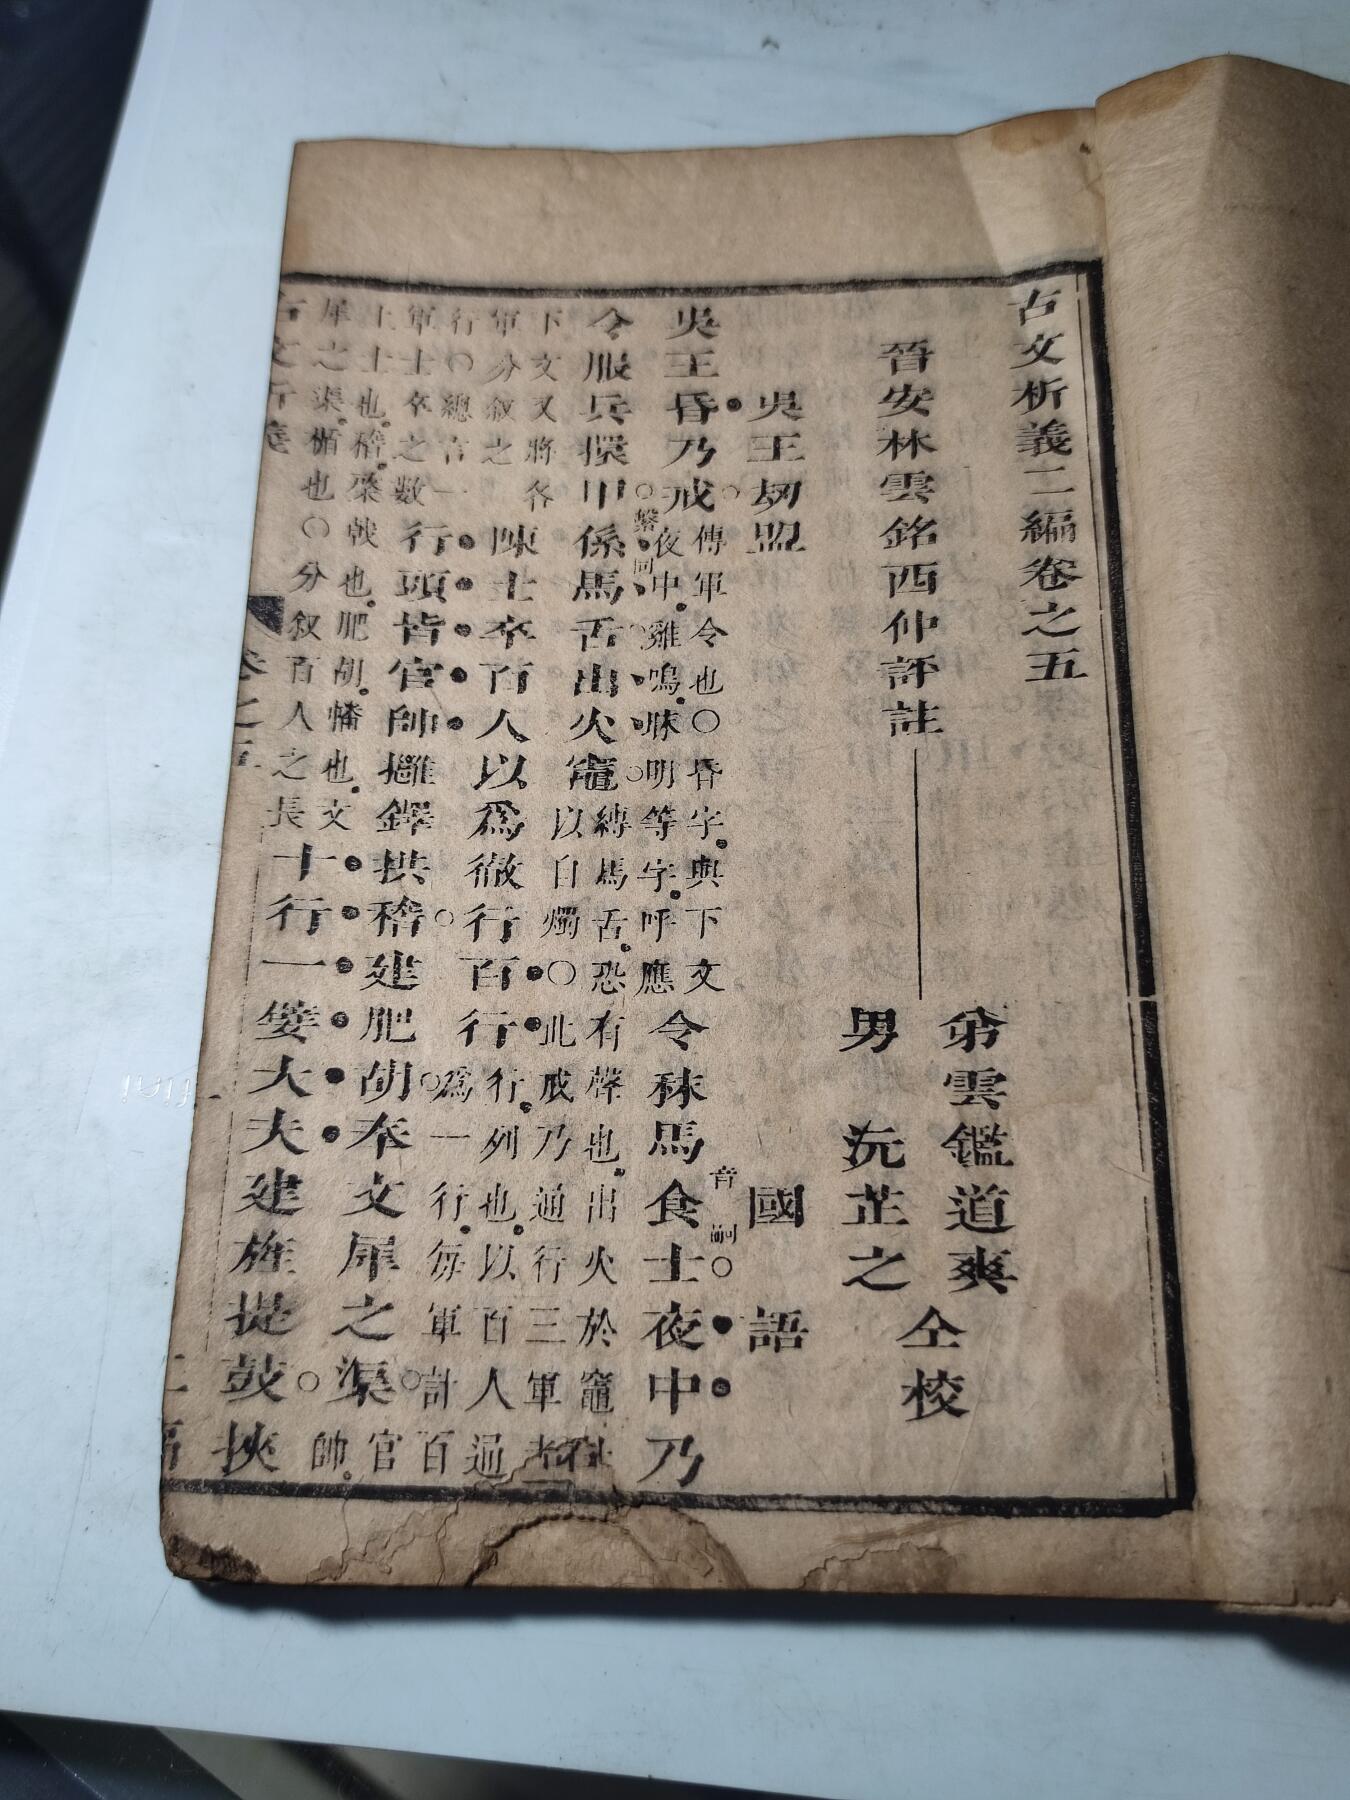 古文析義二編卷之五
晉安林雲銘西仲評註
弟雲鑑道爽
男沅芷之
仝校
吳王刼盟 國語
吳王昏乃戒傳軍令也○昏字與下文夜中雞鳴昧明等字呼應令秣馬食音嗣士夜中乃
令服兵擐甲係馬舌出火竈縛馬舌恐有聲也出火於竈以自燭○此戒乃通行三軍者
下文又將各軍分敘之陳士卒百人以爲徹行百行行列也以百人通爲一行每軍計百
行○總言一軍士卒之數行頭皆官帥擁鐸拱稽建肥胡奉文犀之渠官帥
上士也稽棨戟也肥胡幡也文犀之渠楯也○分叙百人之長十行一嬖大夫建旌提鼓挾
古文析義 卷之五 二編